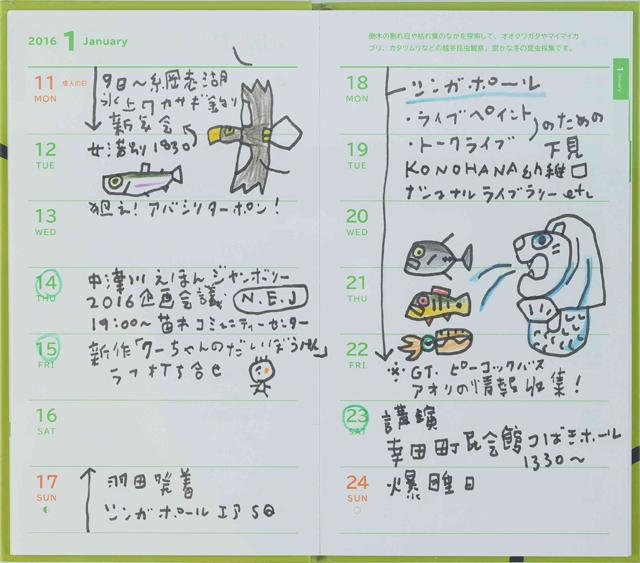 2016 1 January
11 成人の日
MON
9日〜網走湖
氷上ワカサギ釣り
新年会
女満別 1830
12
TUE
狙え!アバシリターポン!
13
WED
14
THU
中津川えほんジャンボリー
2016企画会議 N.E.J
19:00〜苗木コミュニティーセンター
15
FRI
新作「クーちゃんのだいぼうけん」
ラフ打ち合せ
16
SAT
17
SUN
羽田発着
シンガポールエア SQ
倒木の割れ目や枯れ葉のなかを探索して、オオクワガタやマイマイカ
ブリ、カタツムリなどの越冬昆虫観察。密かな冬の昆虫採集です。
1 January
18
MON
シンガポール
・ライブペイント
・トークライブ のための
下見
19
TUE
KONOHANA幼稚口
ナショナルライブラリー etc
20
WED
21
THU
22
FRI
※GT. ピーコックバス
アオリの情報収集!
23
SAT
講演
幸田町民会館つばきホール
1330〜
24
SUN
爆睡日